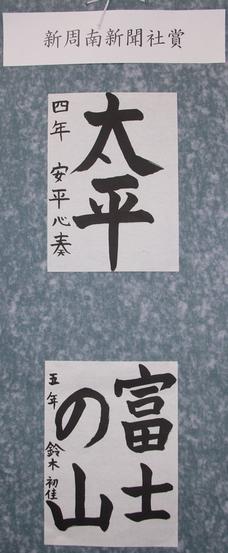 新周南新聞社賞
太平
四年 安平心奏
富士
の山
五年 鈴木初佳